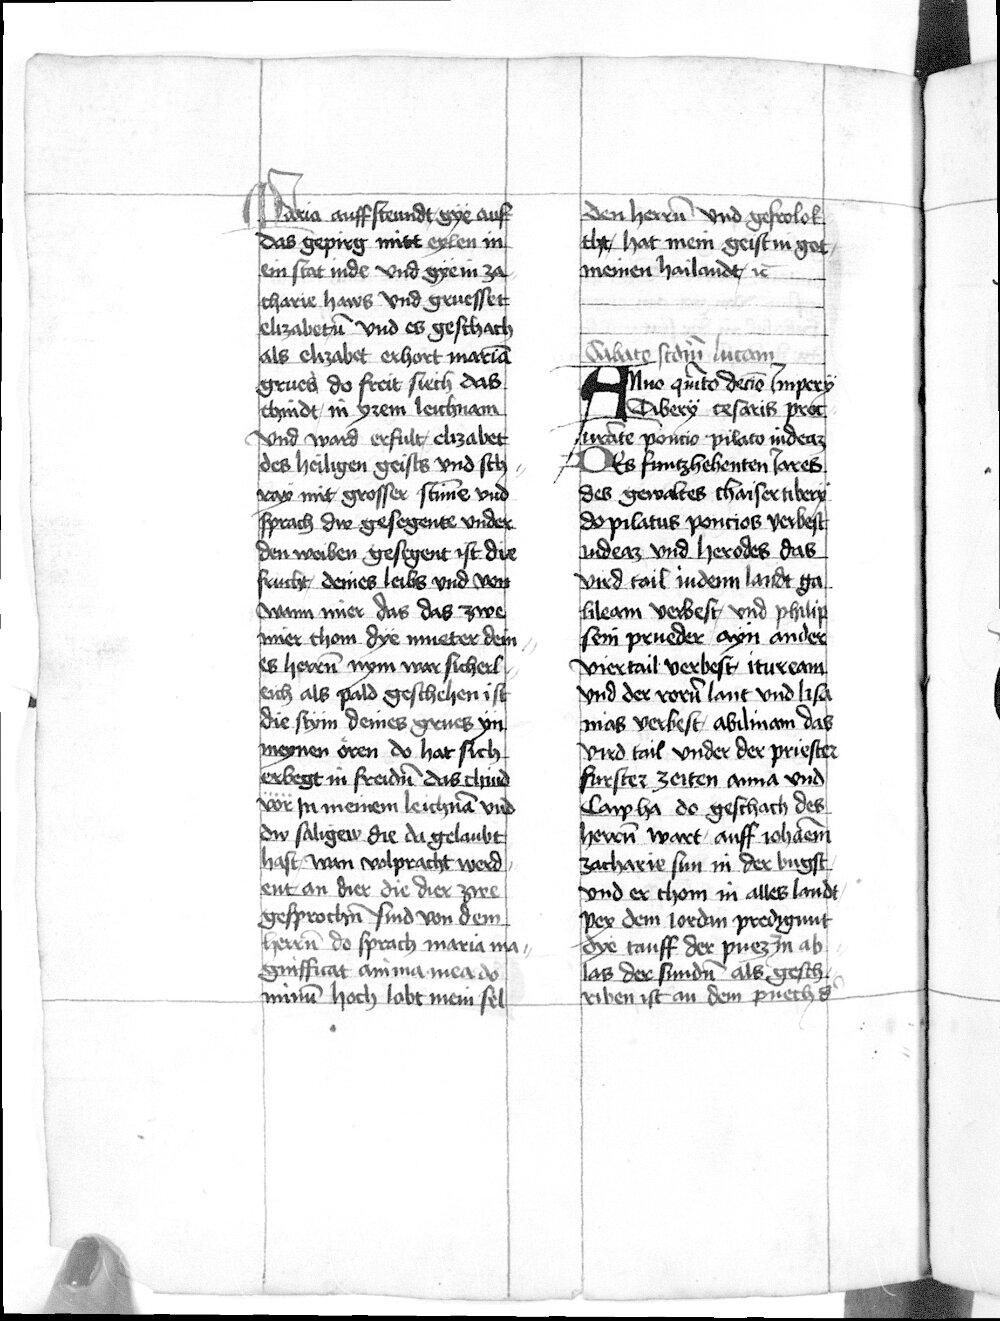 Maria auffsteundt gye auf
das gepirg mitt eylen in
ein stat inde und gye in za
charie haws und gruesset
elizabetū und es geschach
als elizabet erhort mariā
grues do freit siech das
chindt in yrem leichnam
und ward erfult elizabet
des heiligen geists und sch
ray mit grosser stime und
sprach dw gesegente under
den weiben gesegent ist die
frucht deines leibs und von
wann mier das das zwe
mier chom dye mueter dein
es herrn̄ nym war sicherl
eich als pald geschehen ist
die stym deines grues yn
meynen ören do hat sich
erhegt in freidn̄ das chind
vor In meinem leichnā und
dw säligew die du gelaubt
hast wan volpracht werd
ent an dier die dier zwe
gesprochn̄ sind von dem
herrn̄ do sprach maria ma
gnifficat anima mea do
minū hoch lobt mein sel
den herrn̄ und gefrolok
cht hat mein geist in got
meinen hailandt
Sabato scdm̄ lucam
Anno quīto decio Imperÿ
Tiberÿ cesaris proc
urāte poncio pilato iudeaz
Des funtzhehenten Iares
des gewaltes chaiser tiberÿ
do pilatus poncios verbest
iudeaz und herodes das
vird tail in dem landt ga
lileam verbest und philip
sein prueder ayn ander
viertail verbest ituream
und der rorn̄ lant und lisa
nias verbest abilinam das
vird tail under der priester
furster zeiten anna und
Caypha do geschach des
herrn̄ wart auff iohāem
zacharie sun in der bugst
und er chom in alles landt
pey dem iordan predigunt
dye tauff der puez In ab
las der sundn̄ als gesch
riben ist an dem puech d